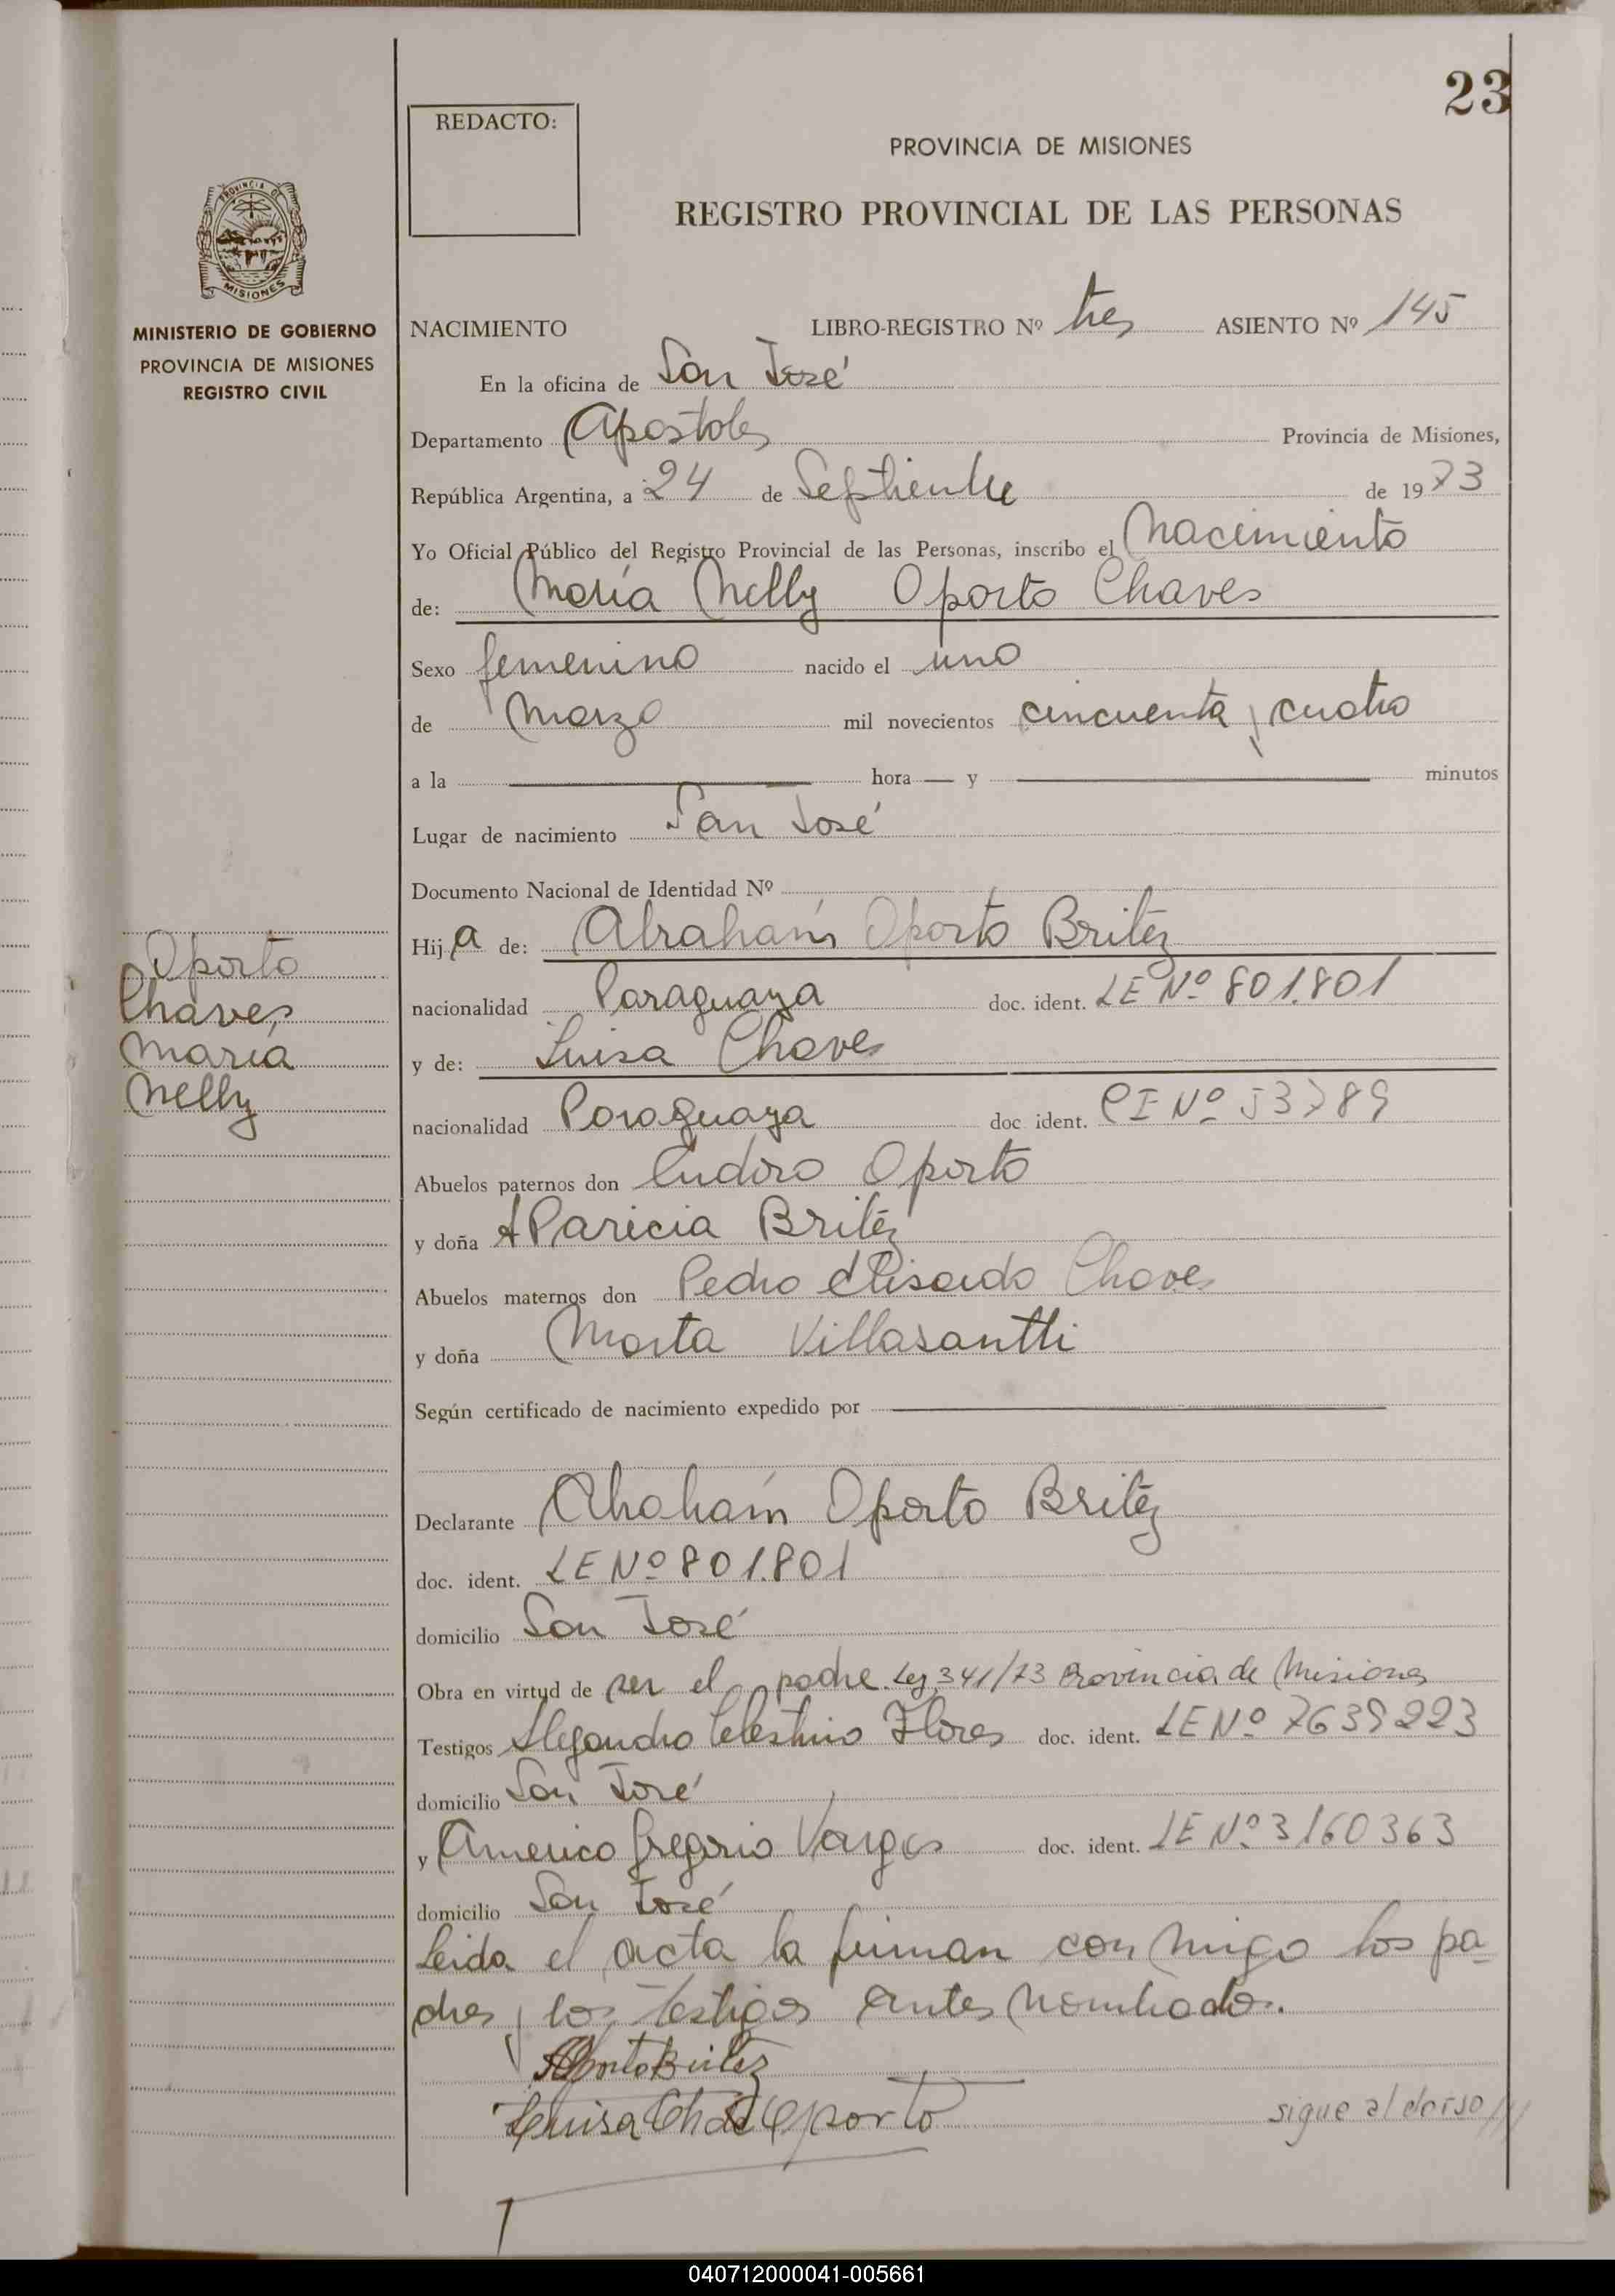 23
REDACTO:
PROVINCIA DE MISIONES
REGISTRO PROVINCIAL DE LAS PERSONAS
PROVINCIA DE
MISIONES
MINISTERIO DE GOBIERNO
PROVINCIA DE MISIONES
REGISTRO CIVIL
NACIMIENTO LIBRO-REGISTRO Nº tres ASIENTO Nº 145
En la oficina de San José
Departamento Apostoles Provincia de Misiones,
República Argentina, a 24 de Septiembre de 1973
Yo Oficial Público del Registro Provincial de las Personas, inscribo el Nacimiento
de: María Nelly Oporto Chaves
Sexo femenino nacido el uno
de Marzo mil novecientos cincuenta y cuatro
a la hora y minutos
Lugar de nacimiento San José
Documento Nacional de Identidad Nº
Hija de: Abraham Oporto Britez
nacionalidad Paraguaya doc. ident. LE Nº 801.801
y de: Luisa Chaves
nacionalidad Paraguaya doc ident. CI Nº 53789
Abuelos paternos don Oporto
y doña Aparicia Britez
Abuelos maternos don Pedro Elisardo Chaves
y doña Marta Villasantti
Según certificado de nacimiento expedido por
Declarante Abraham Oporto Britez
doc. ident. LE Nº 801.801
domicilio San José
Obra en virtud de ser el padre. Ley 341/73 Provincia de Misiones
Testigos Alejandro Celestino Flores doc. ident. LE Nº 7639223
domicilio San José
y Americo Gregorio Vargas doc. ident. LE Nº 3160363
domicilio San José
Leida el acta la firman con migo los pa-
dres y los testigos antes nombrados.
Oporto
Chaves
María
Nelly
AOportoBritez
Luisa Oporto
sigue al dorso ///
040712000041-005661